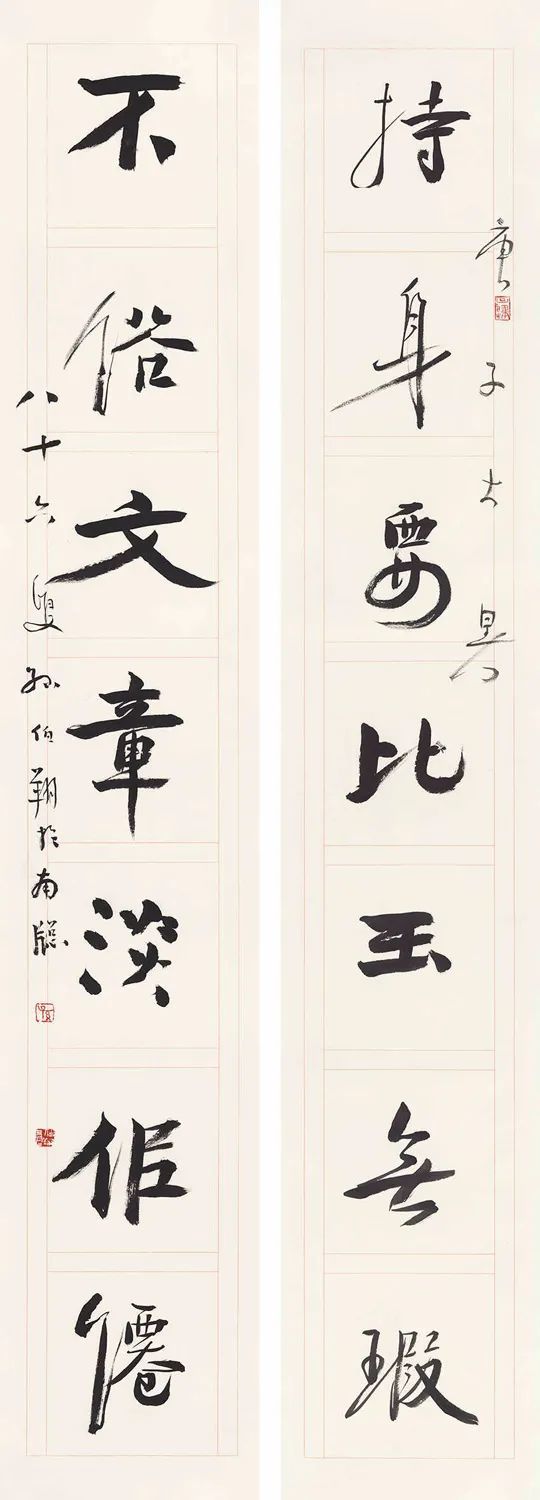 庚子大暑
持身要比玉無瑕
不俗文章淡佀僊
八十六叟孫伯翔於南牕